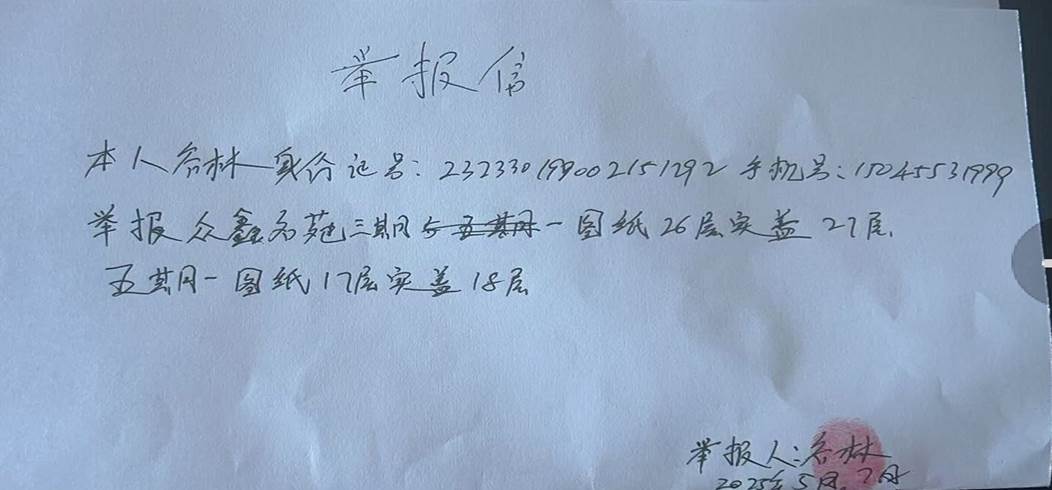 举报信
本人谷林身份证号：232330199002151292手机号：15045531999
举报众鑫名苑三期与五期一图纸26层实盖27层．
五期一图纸17层实盖18层
举报人：谷林
2025年5月7日